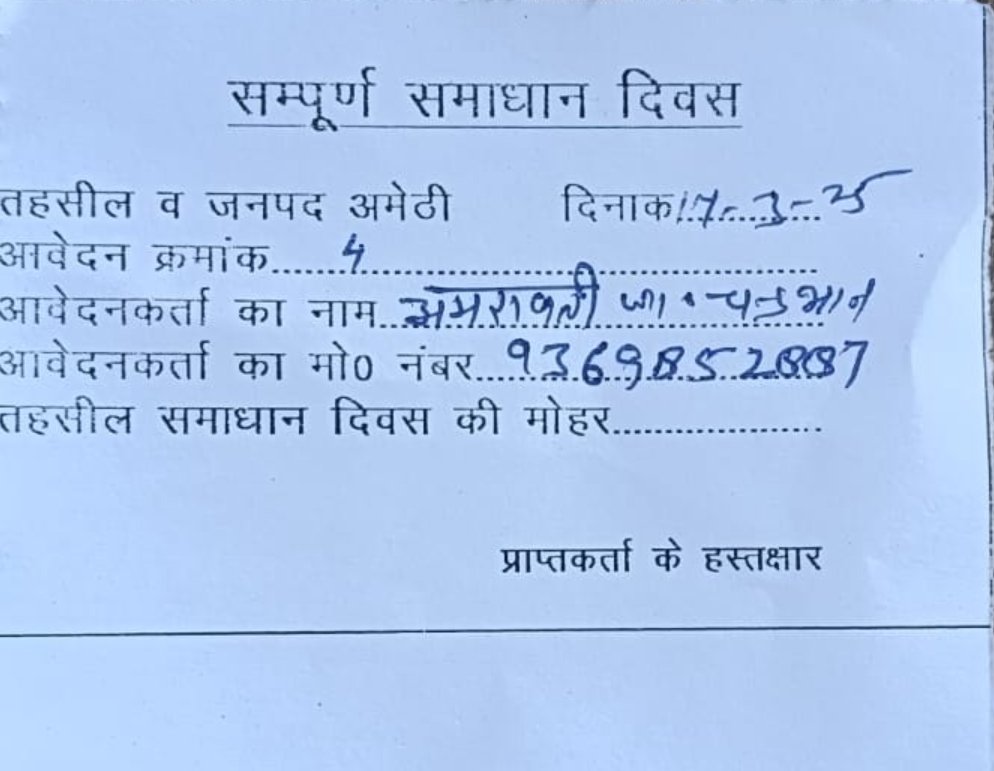 सम्पूर्ण समाधान दिवस
तहसील व जनपद अमेठी दिनाक 17-3-25
आवेदन क्रमांक......4..............................
आवेदनकर्ता का नाम..अमरावती
आवेदनकर्ता का मो0 नंबर..
तहसील समाधान दिवस की मोहर...................
प्राप्तकर्ता के हस्तक्षार